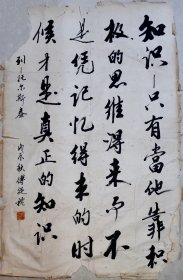 知识—只有當他靠积
极的思维得来而不
是凭记忆得来的时
候才是真正的知识
列·托尔斯泰
戊辰秋傅延龄